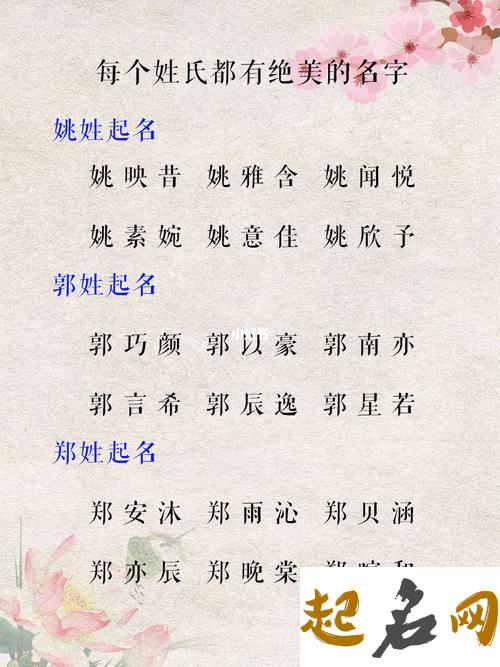 每个姓氏都有绝美的名字
姚姓起名
姚映昔 姚雅含 姚闻悦
姚素婉 姚意佳 姚欣予
郭姓起名
郭巧颜 郭以豪 郭南亦
郭言希 郭辰逸 郭星若
郑姓起名
郑安沐 郑雨沁 郑贝涵
郑亦辰 郑晚棠 郑
起名网